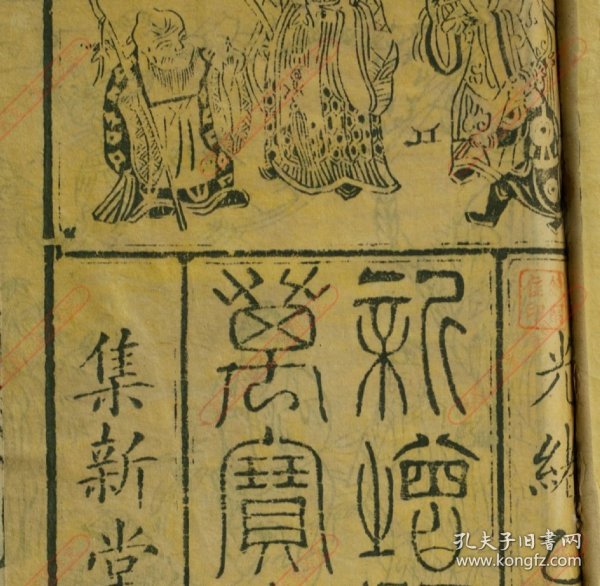 光緒
新增
萬寶
集新堂
孔夫子旧书网
www.kongfz.com